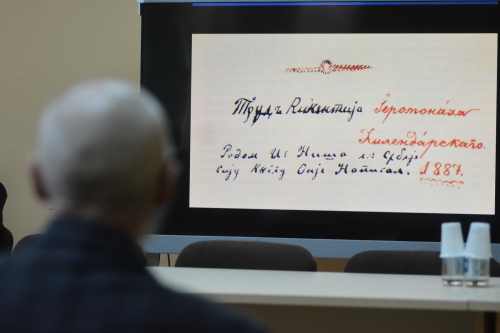 Трудъ Викентија Іеромонаха
Хилендарскаго.
Родом из Ниша из Србије
сију книгу Онје Написал. 1887.